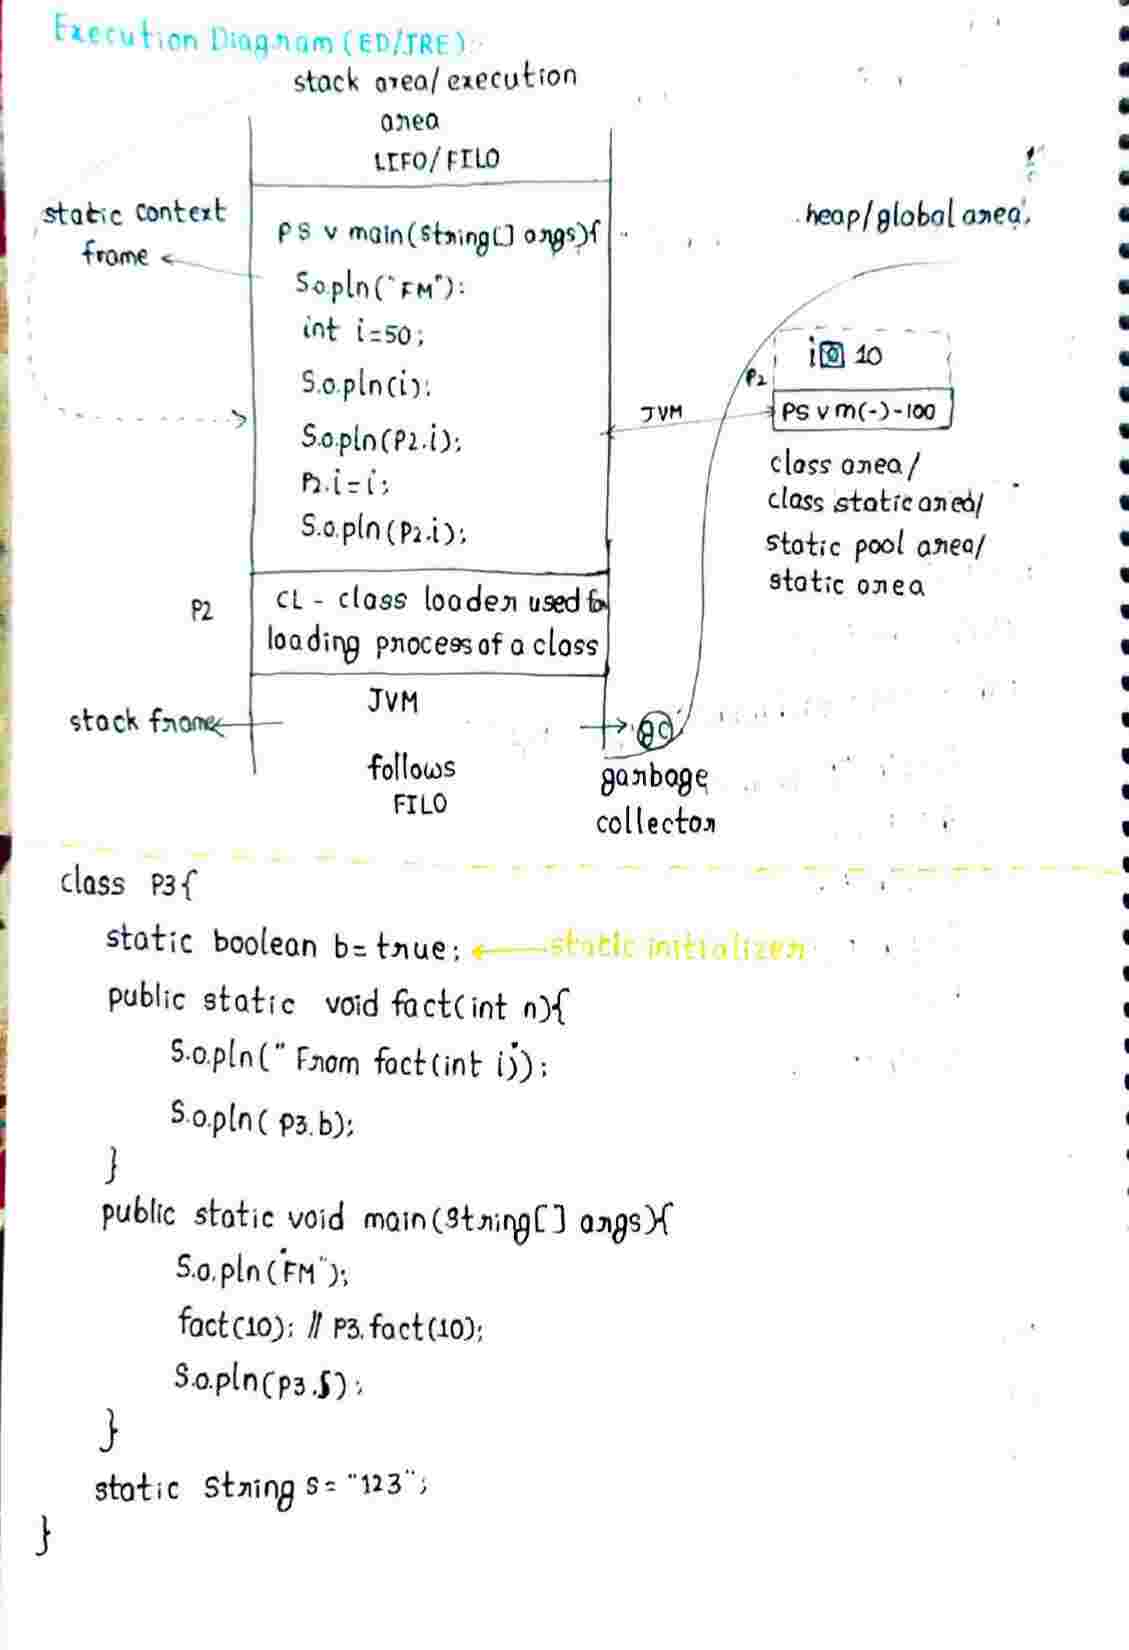 Execution Diagram (ED/JRE):
stack area/execution
area
LIFO/FILO
static context
frame
P S v main(String[] args){
S.o.pln("FM");
int i=50;
S.o.pln(i);
S.o.pln(P2.i);
P2.i=i;
S.o.pln(P2.i);
P2
CL - class loader used for
loading process of a class
JVM
stack frame
follows
FILO
heap/global area
i 10
P2
JVM
PS v m(-)-100
class area/
class static area/
static pool area/
static area
gc
garbage
collector
class P3{
static boolean b=true; static initializer
public static void fact(int n){
S.o.pln("From fact(int i)");
S.o.pln(P3.b);
}
public static void main(String[] args){
S.o.pln("FM");
fact(10); // P3.fact(10);
S.o.pln(P3.s);
}
static String s="123";
}